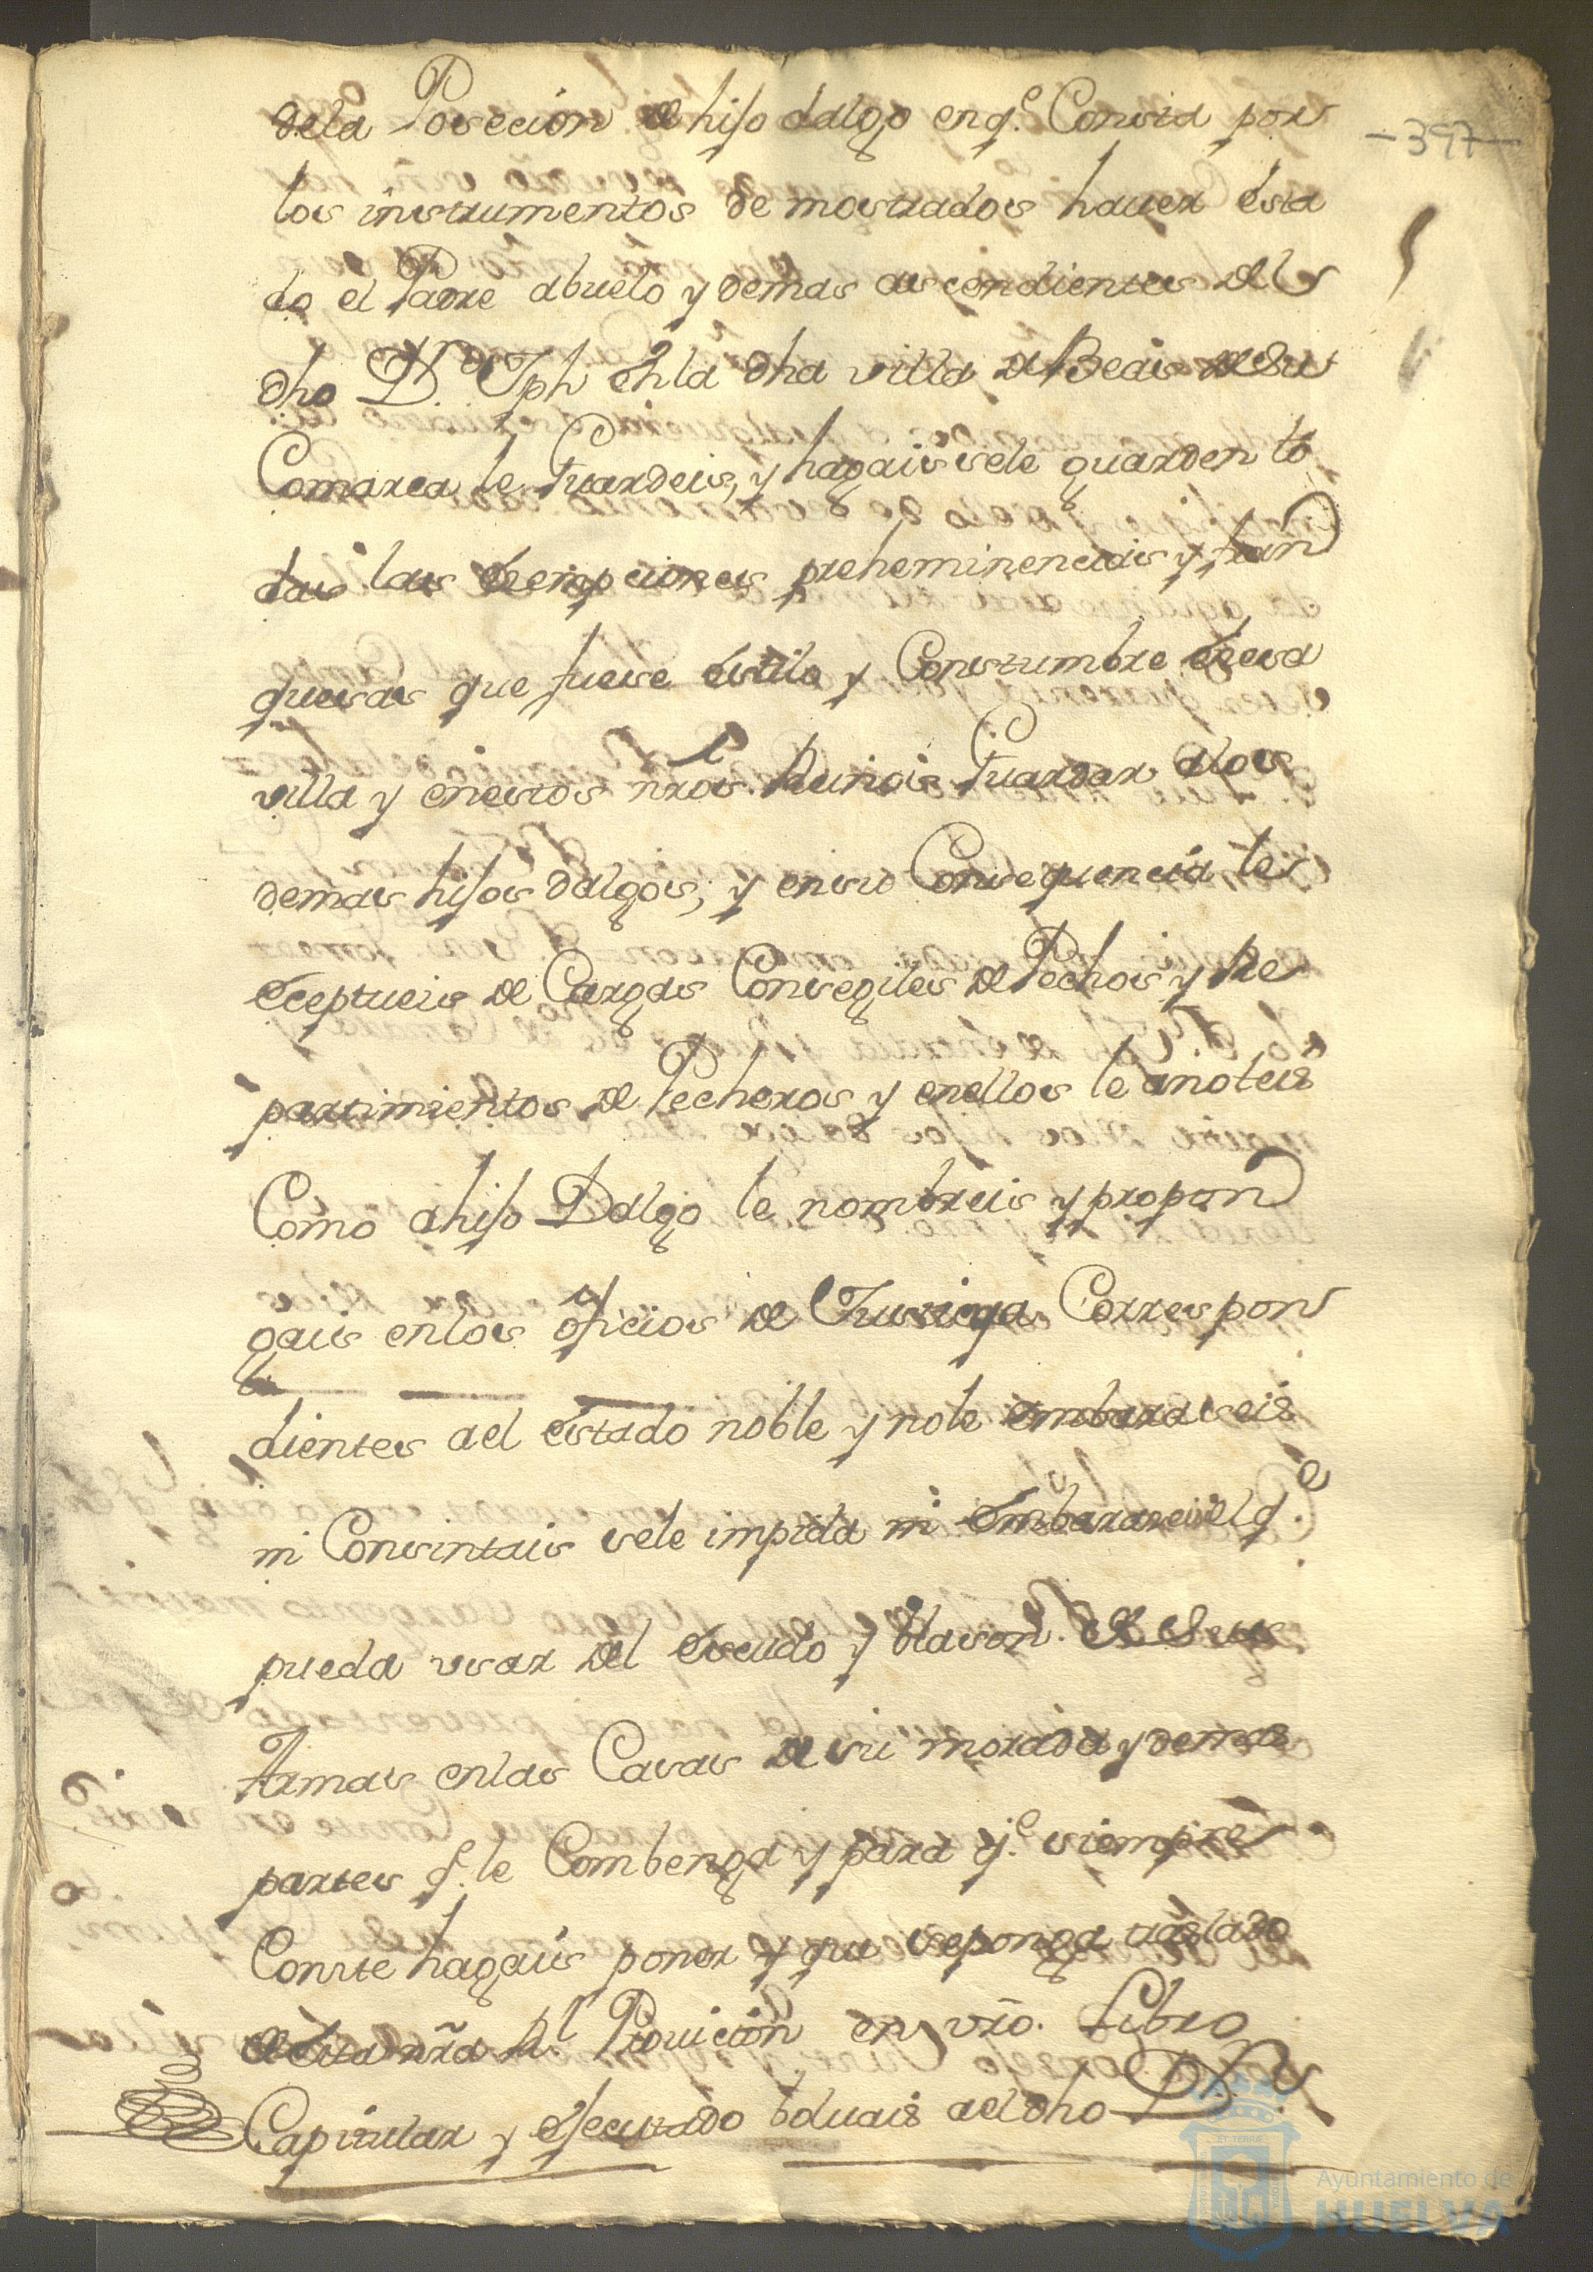 dela Posecion de hiso dalgo en q.e Consta por
-397-
los instrumentos de mostrados hauer esta
do el Padre abuelo y demas ascendientes del
dho D.n Jph en la dha villa de Beas de Su
Comarca le Guardeis, y hagais sele guarden to
das las Esempciones preheminencias y fran
quesas que fuese estilo y Constumbre de esa
villa y enestos nros. Reinos Guardar alos
demas hisos dalgos; y ensu Consequencia le
Eceptueis de Cargas Consegiles de Pechos y Re
partimientos de Pecheros y enellos le anoteis
Como a hiso Dalgo le nombreis y propon
gais enlos oficios de Justicia Correspon
dientes ael estado noble y nole embaraseis
ni Consintais sele impida ni Embarazeis el q.e
pueda usar del Escudo y blason de Sus
Armas enlas Casas de su morada y demas
partes q.e le Combenga y para q.e siempre
Conste hagais poner y que se ponga traslado
de esta nra Rl. Prouicion en vro. Libro
Capitular y Esecutado bduais ael dho D.n
Ayuntamiento de
HUELVA